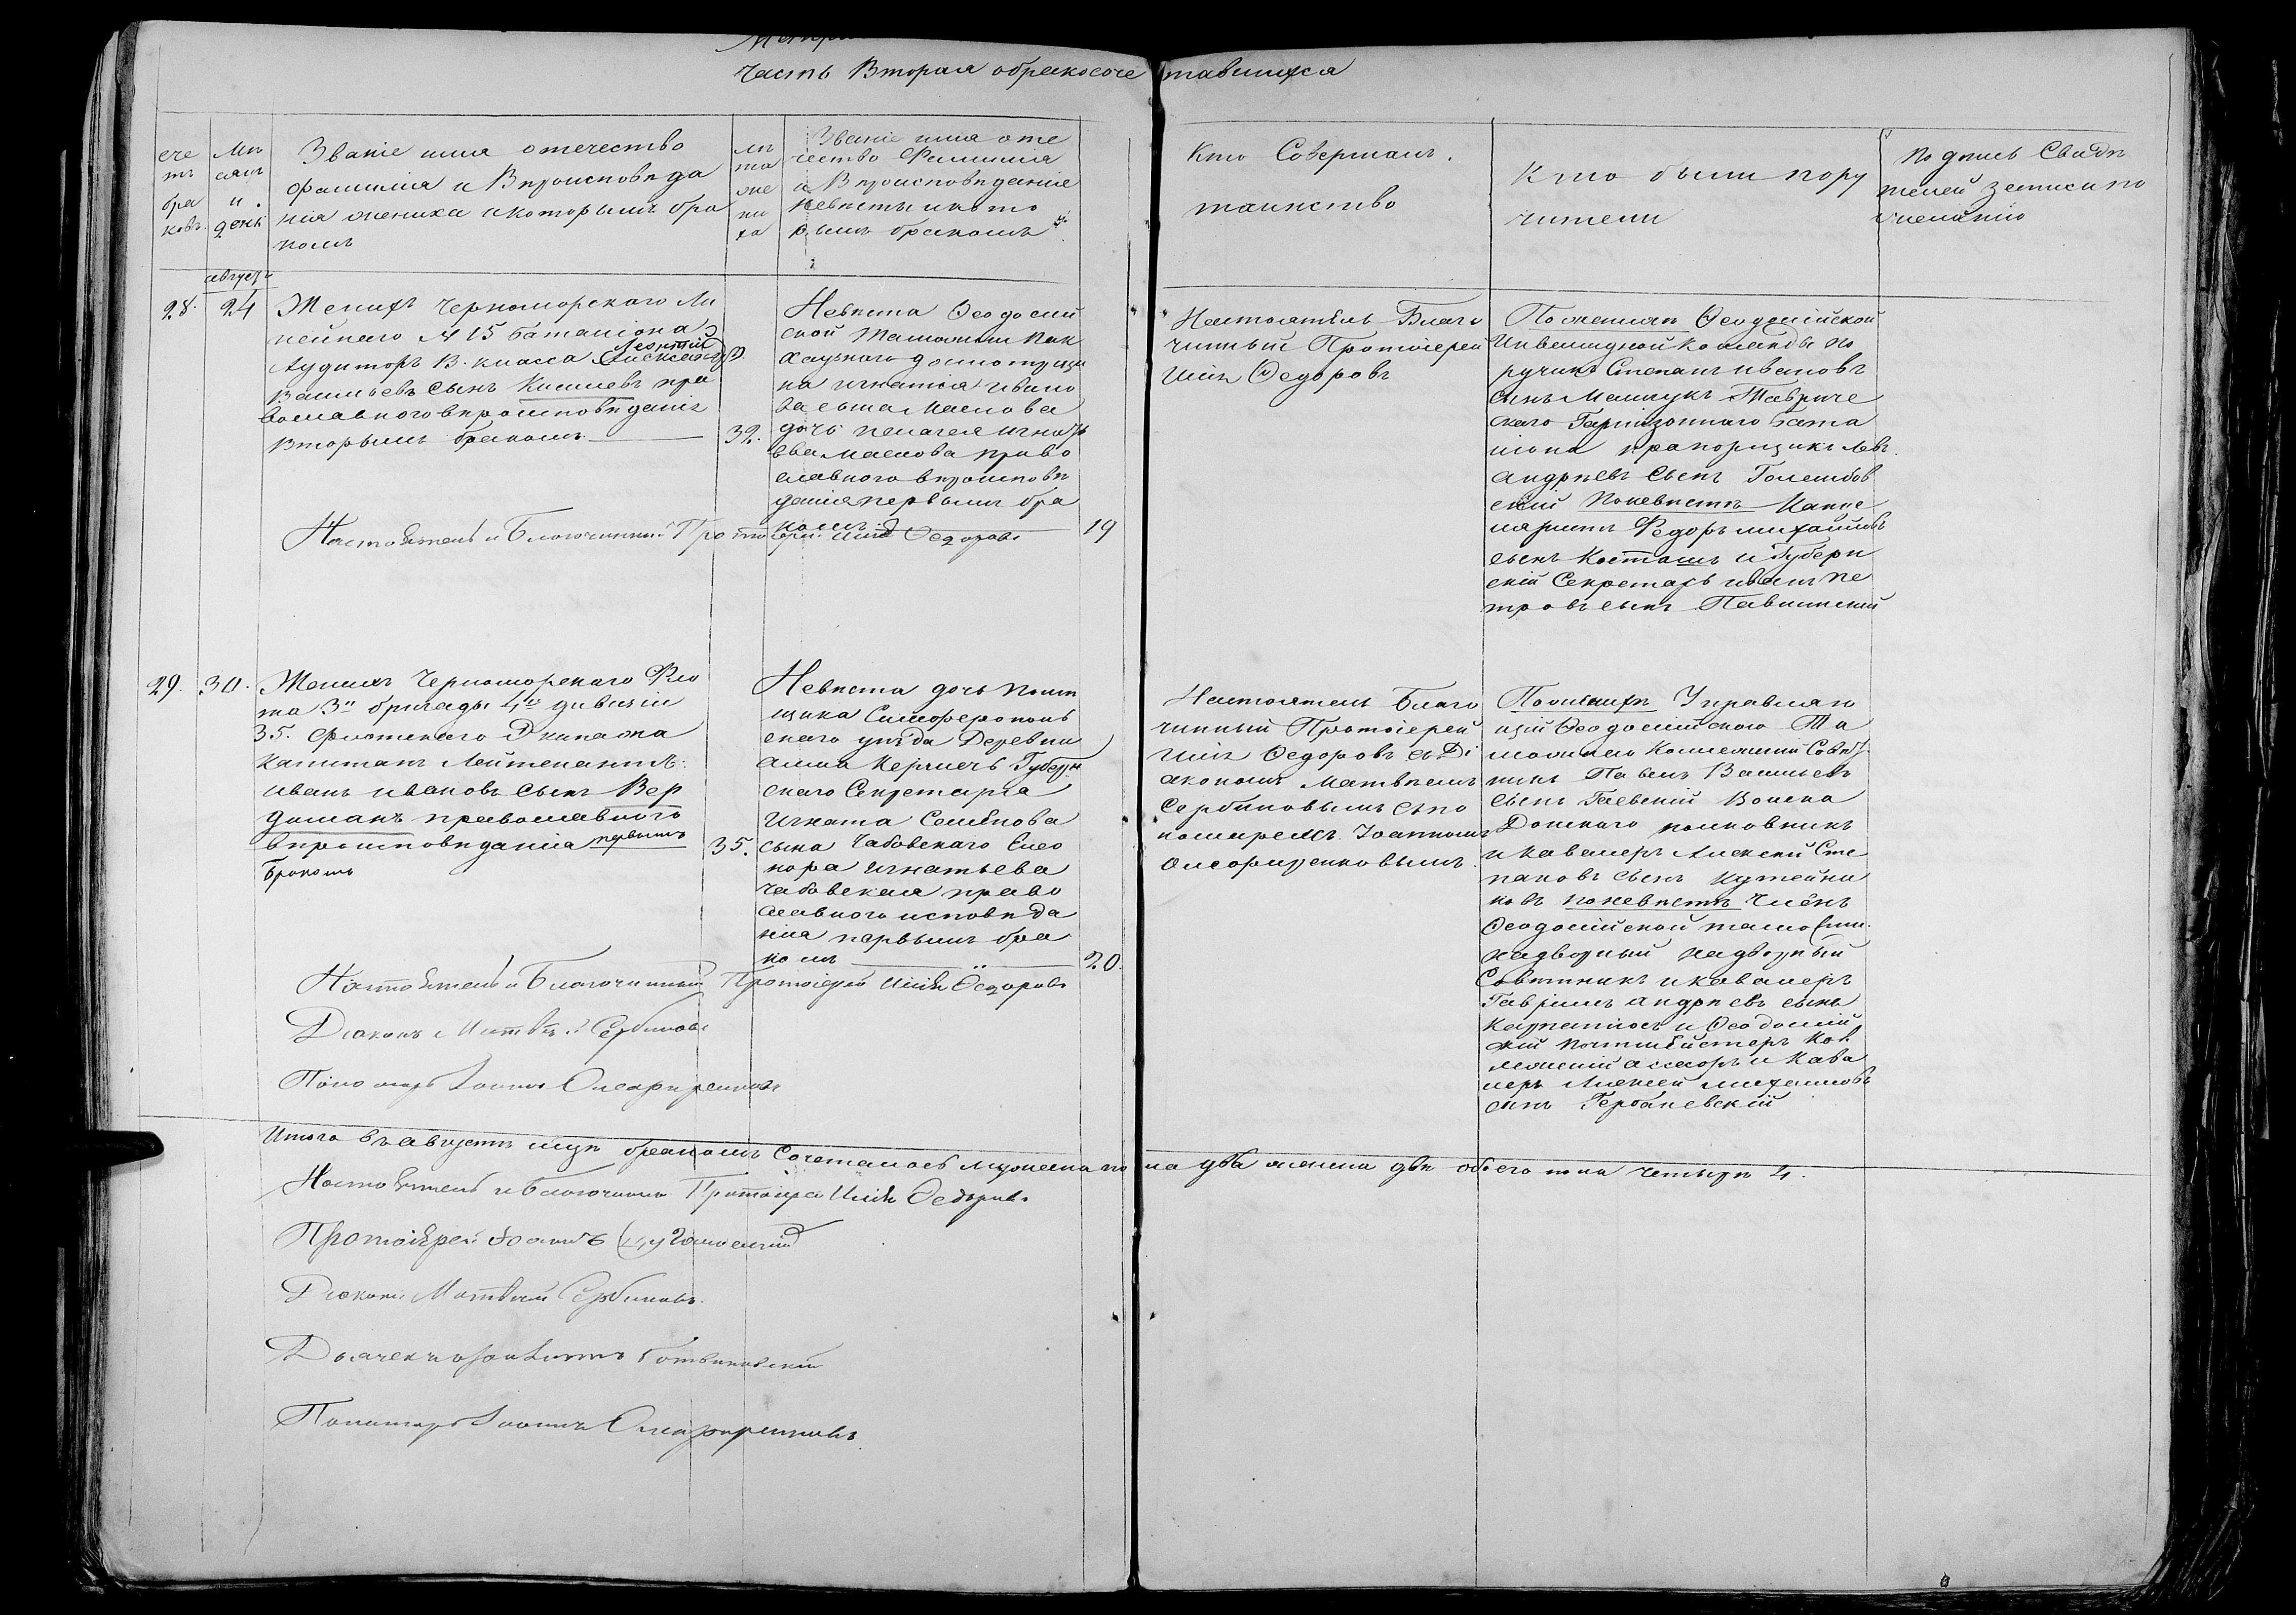 Часть Вторая обракосочетавшихся
сче
тъ
бра
ковъ
Мѣ
сяцъ
и
день
Званіе имя отечество
фамилія и Вѣроисповѣда
нія жениха и которымъ бра
комъ
лѣ
та
же
ни
ха
Званіе имя оте
чество Фамилія
и Вѣроисповѣданіе
невѣсты и кото
рымъ бракомъ
Кто Совершалъ
таинство
Кто были пору
чители
Подпись Свидѣ
телей записи по
желанію
августъ
28. 24
Женихъ Черноморскаго Ли
нейнаго № 15 баталіона
Аудиторъ В. класса
Васильевъ сынъ Киліевъ пра
вославнаго вѣроисповѣданія
вторымъ бракомъ
32.
Невѣста Ѳеодосій
ской Таможни Пак
хаузнаго
на Игнатія Ивано
ва сына Маслова
дочь Пелагея Игнать
ева Маслова право
славнаго вѣроисповѣ
данія первымъ бра
комъ
19
Настоятель Благо
чинный Протоіерей
Илія Ѳедоровъ
По женихѣ Ѳеодосійской
Инвалидной Команды по
ручикъ Степанъ Ивановъ
сынъ Мащукъ Тавриче
скаго Гарнизоннаго Бата
ліона прапорщикъ Левъ
Андреевъ Сынъ Голембов
скій по невѣстѣ Канце
ляристъ Федоръ Михайловъ
сынъ Косташъ и Губерн
скій Секретарь Иванъ Пе
тровъ сынъ Павлинскій
Настоятель и Благочинный Протоіерей Илія Ѳедоровъ
29. 30.
Женихъ Черноморскаго Фло
та 3й бригады 4й дивизіи
35. Флотскаго Экипажа
Капитанъ Лейтенантъ
Иванъ Ивановъ сынъ Вер
думанъ православнаго
вѣроисповѣданія первымъ
Бракомъ
35.
Невѣста дочь помѣ
щика Симферополь
скаго уѣзда Деревни
Аина Керменъ Губерн
скаго Секретаря
Игната Семёнова
сына Чабовскаго Елео
нора Игнатьева
Чабовская право
славнаго исповѣда
нія первымъ бра
комъ
20.
Настоятель Благо
чинный Протоіерей
Илія Ѳедоровъ съ Ді
акономъ Матвѣемъ
Сербиновымъ съ по
номаремъ Іоанномъ
По женихѣ Управляю
щій Ѳеодосійскою Та
можнею Коллежскій Совѣт
никъ Павелъ Васильевъ
сынъ Гаевскій Войска
Донскаго полковникъ
и кавалеръ Алексѣй Сте
пановъ сынъ Кутейни
ковъ по невѣстѣ Членъ
Ѳеодосійской таможни
надворный надворный
Совѣтникъ и кавалеръ
Гавріилъ Андреевъ сынъ
и Ѳеодосій
скій почтмейстеръ Кол
лежскій ассесоръ и Кава
леръ Алексѣй Михайловъ
сынъ Гербаневскій
Настоятель и Благочинный Протоіерей Илія Ѳедоровъ
Діаконъ Матвѣй Сербиновъ
Пономарь Іоаннъ
Итого въ августѣ мцѣ бракомъ Сочеталось мужеска пола два женска двѣ обоего пола четыре 4.
Настоятель и Благочинный Протоіерей Илія Ѳедоровъ
Протоіерей Іоаннъ
Діаконъ Матвѣй Сербиновъ
Дьячекъ
Пономарь Іоаннъ